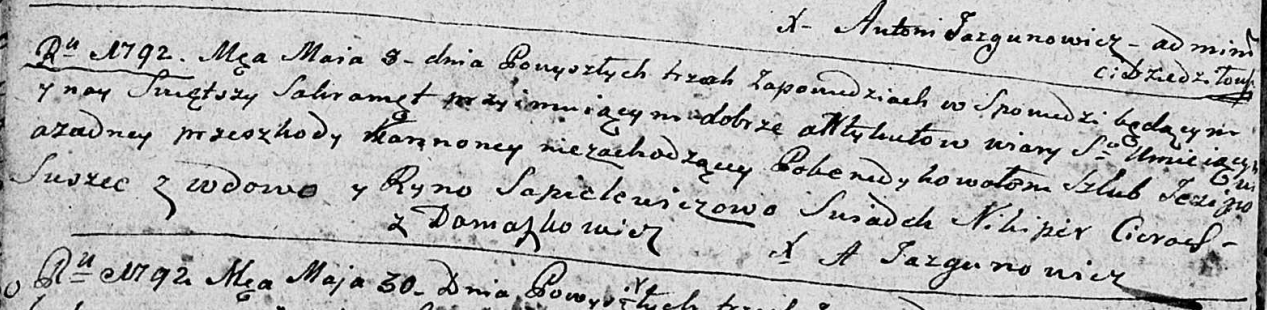 X. Antoni Jazgunowicz admini
Ru 1792. Mca Maia 8 dnia Powyszłych trzech Zapowiedziach w Spowiedzi będącym
y nay Swiętszy Sakrament przyimuiącym dobrze attybutow wiary Sgo Umieiącym
azadney przeszkody kannoney niezachodzącey Pobenedykowałem Szlub
Suszec z wdowo y Ryno Sapielewiczowo Swiadek Nikiper
z Damaszkowicz X A Jazgunowicz
Ru 1792 Mca Maja 30 Dnia Powyszłych